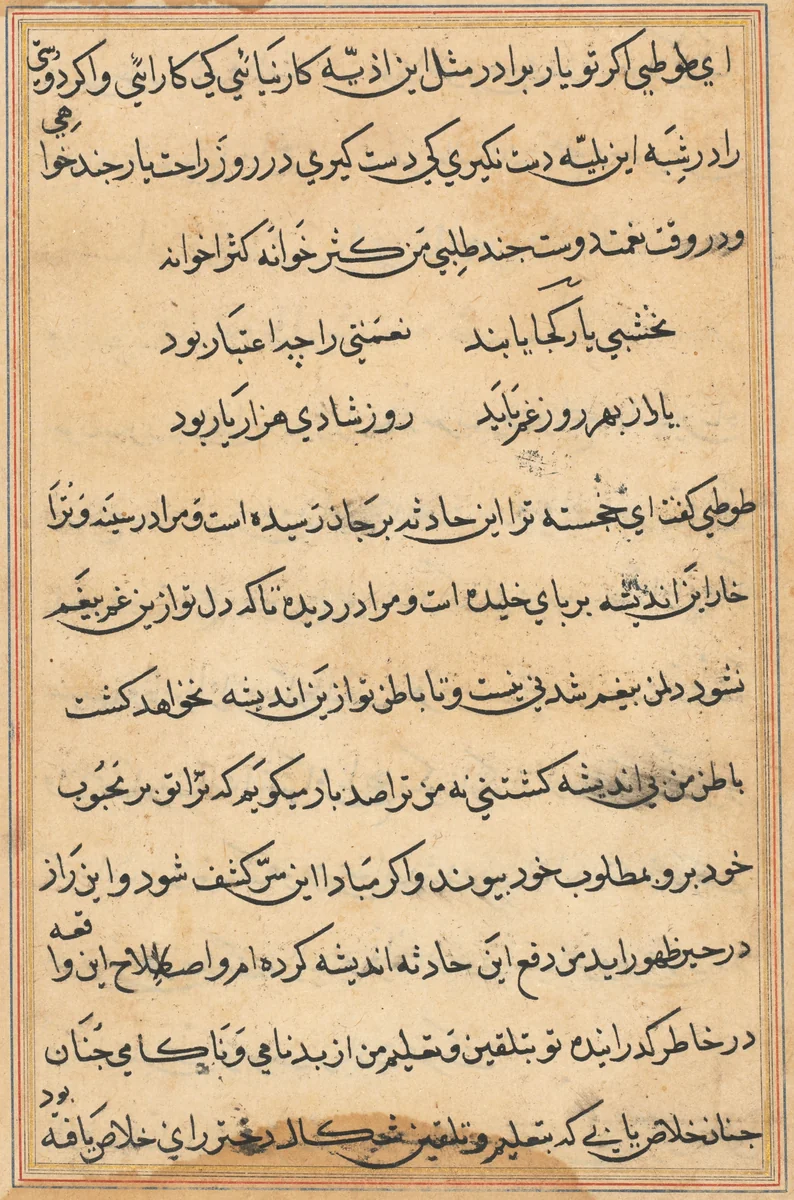 اي طوطي اكر تو يار برادر مثل اين اذيّه كار نيائي كي كار ائي واكر دوستي
را در شبه اين بليّه دست نكيري كي دست كيري در روز راحت يار چند خواهي
ودر وقت نعمت دوست چند طلبي من كثر خوانه كثر اخوانه
نخشبي يار كجا يابند نعمتي را چه اعتبار بود
يار از بهر روز غم بايد روز شادي هزار يار بود
طوطي كفت اي خجسته ترا اين حادثه بر جان رسيده است و مرا در سينه و ترا
خار اين انديشه بر پاي خليده است و مرا در ديده تا كه دل تو ازين غم بيغم
نشود دلمن بيغم شدني نيست و تا باطن تو ازين انديشه نخواهد كشت
باطن من بي انديشه كشتني نه من ترا صد بار ميكويم كه ترا تو بر محبوب
خود برو بمطلوب خود پيوند واكر مبادا اين سرّ كشف شود و اين راز
در حيز ظهور ايد من دفع اين حادثه انديشه كرده ام و اصلاح اين واقعه
در خاطر كذرانيده تو بتلقين و تعليم من از بدنامي و ناكامي چنان
چنان خلاص يابي كه بتعليم و تلقين شكال دختر راي خلاص يافته بود